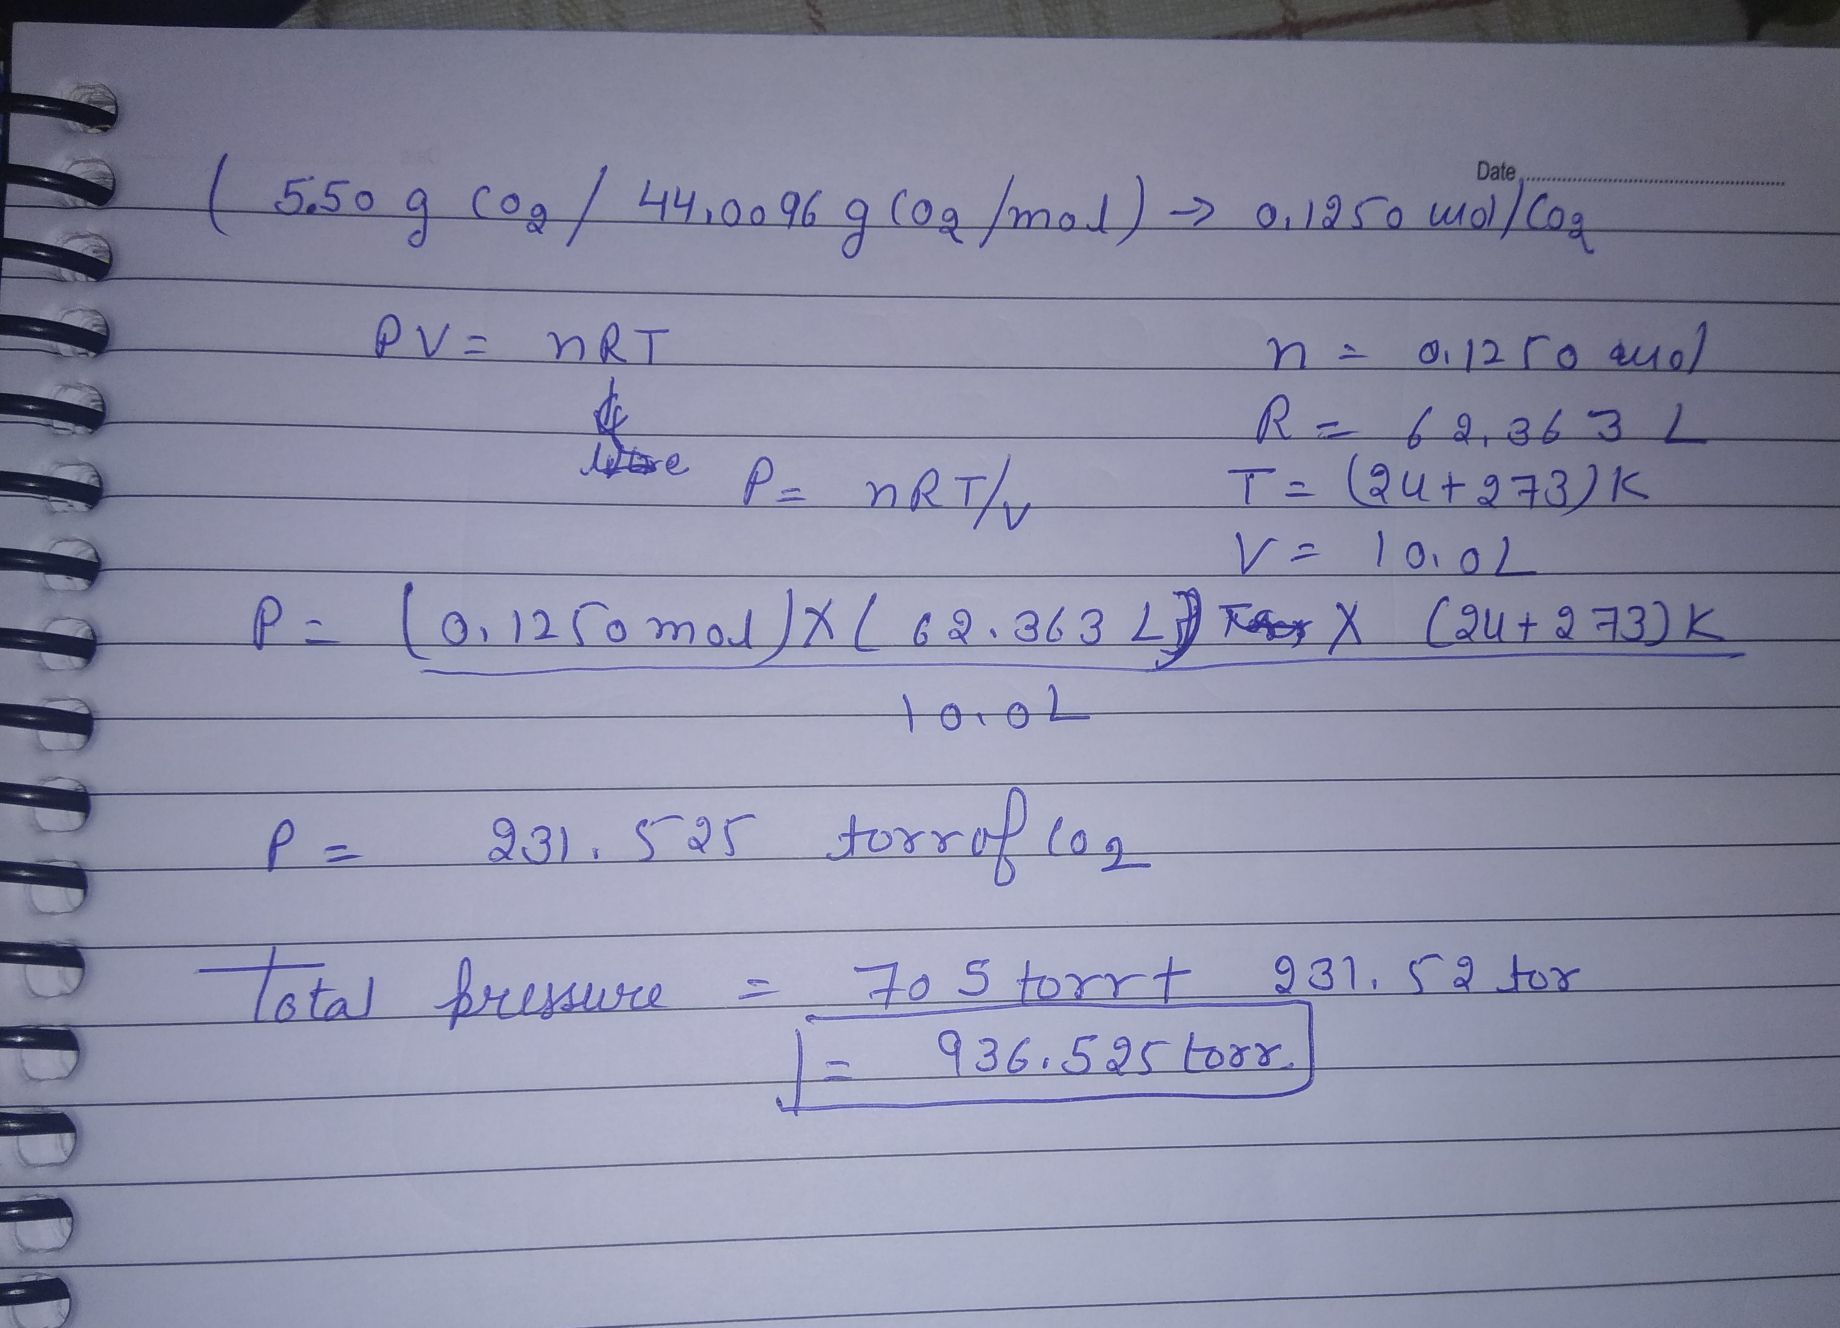 Date
( 5.50 g CO2 / 44.0096 g CO2 /mol) → 0.1250 mol/CO2
PV = nRT
n = 0.1250 mol
R = 62.363 L
P = nRT/V
T = (24+273)K
V = 10.0L
P = (0.1250 mol)X( 62.363 L) Torr X (24+273)K
10.0L
P = 231.525 torr of CO2
Total pressure = 705 torr+ 231.52 tor
= 936.525 torr.